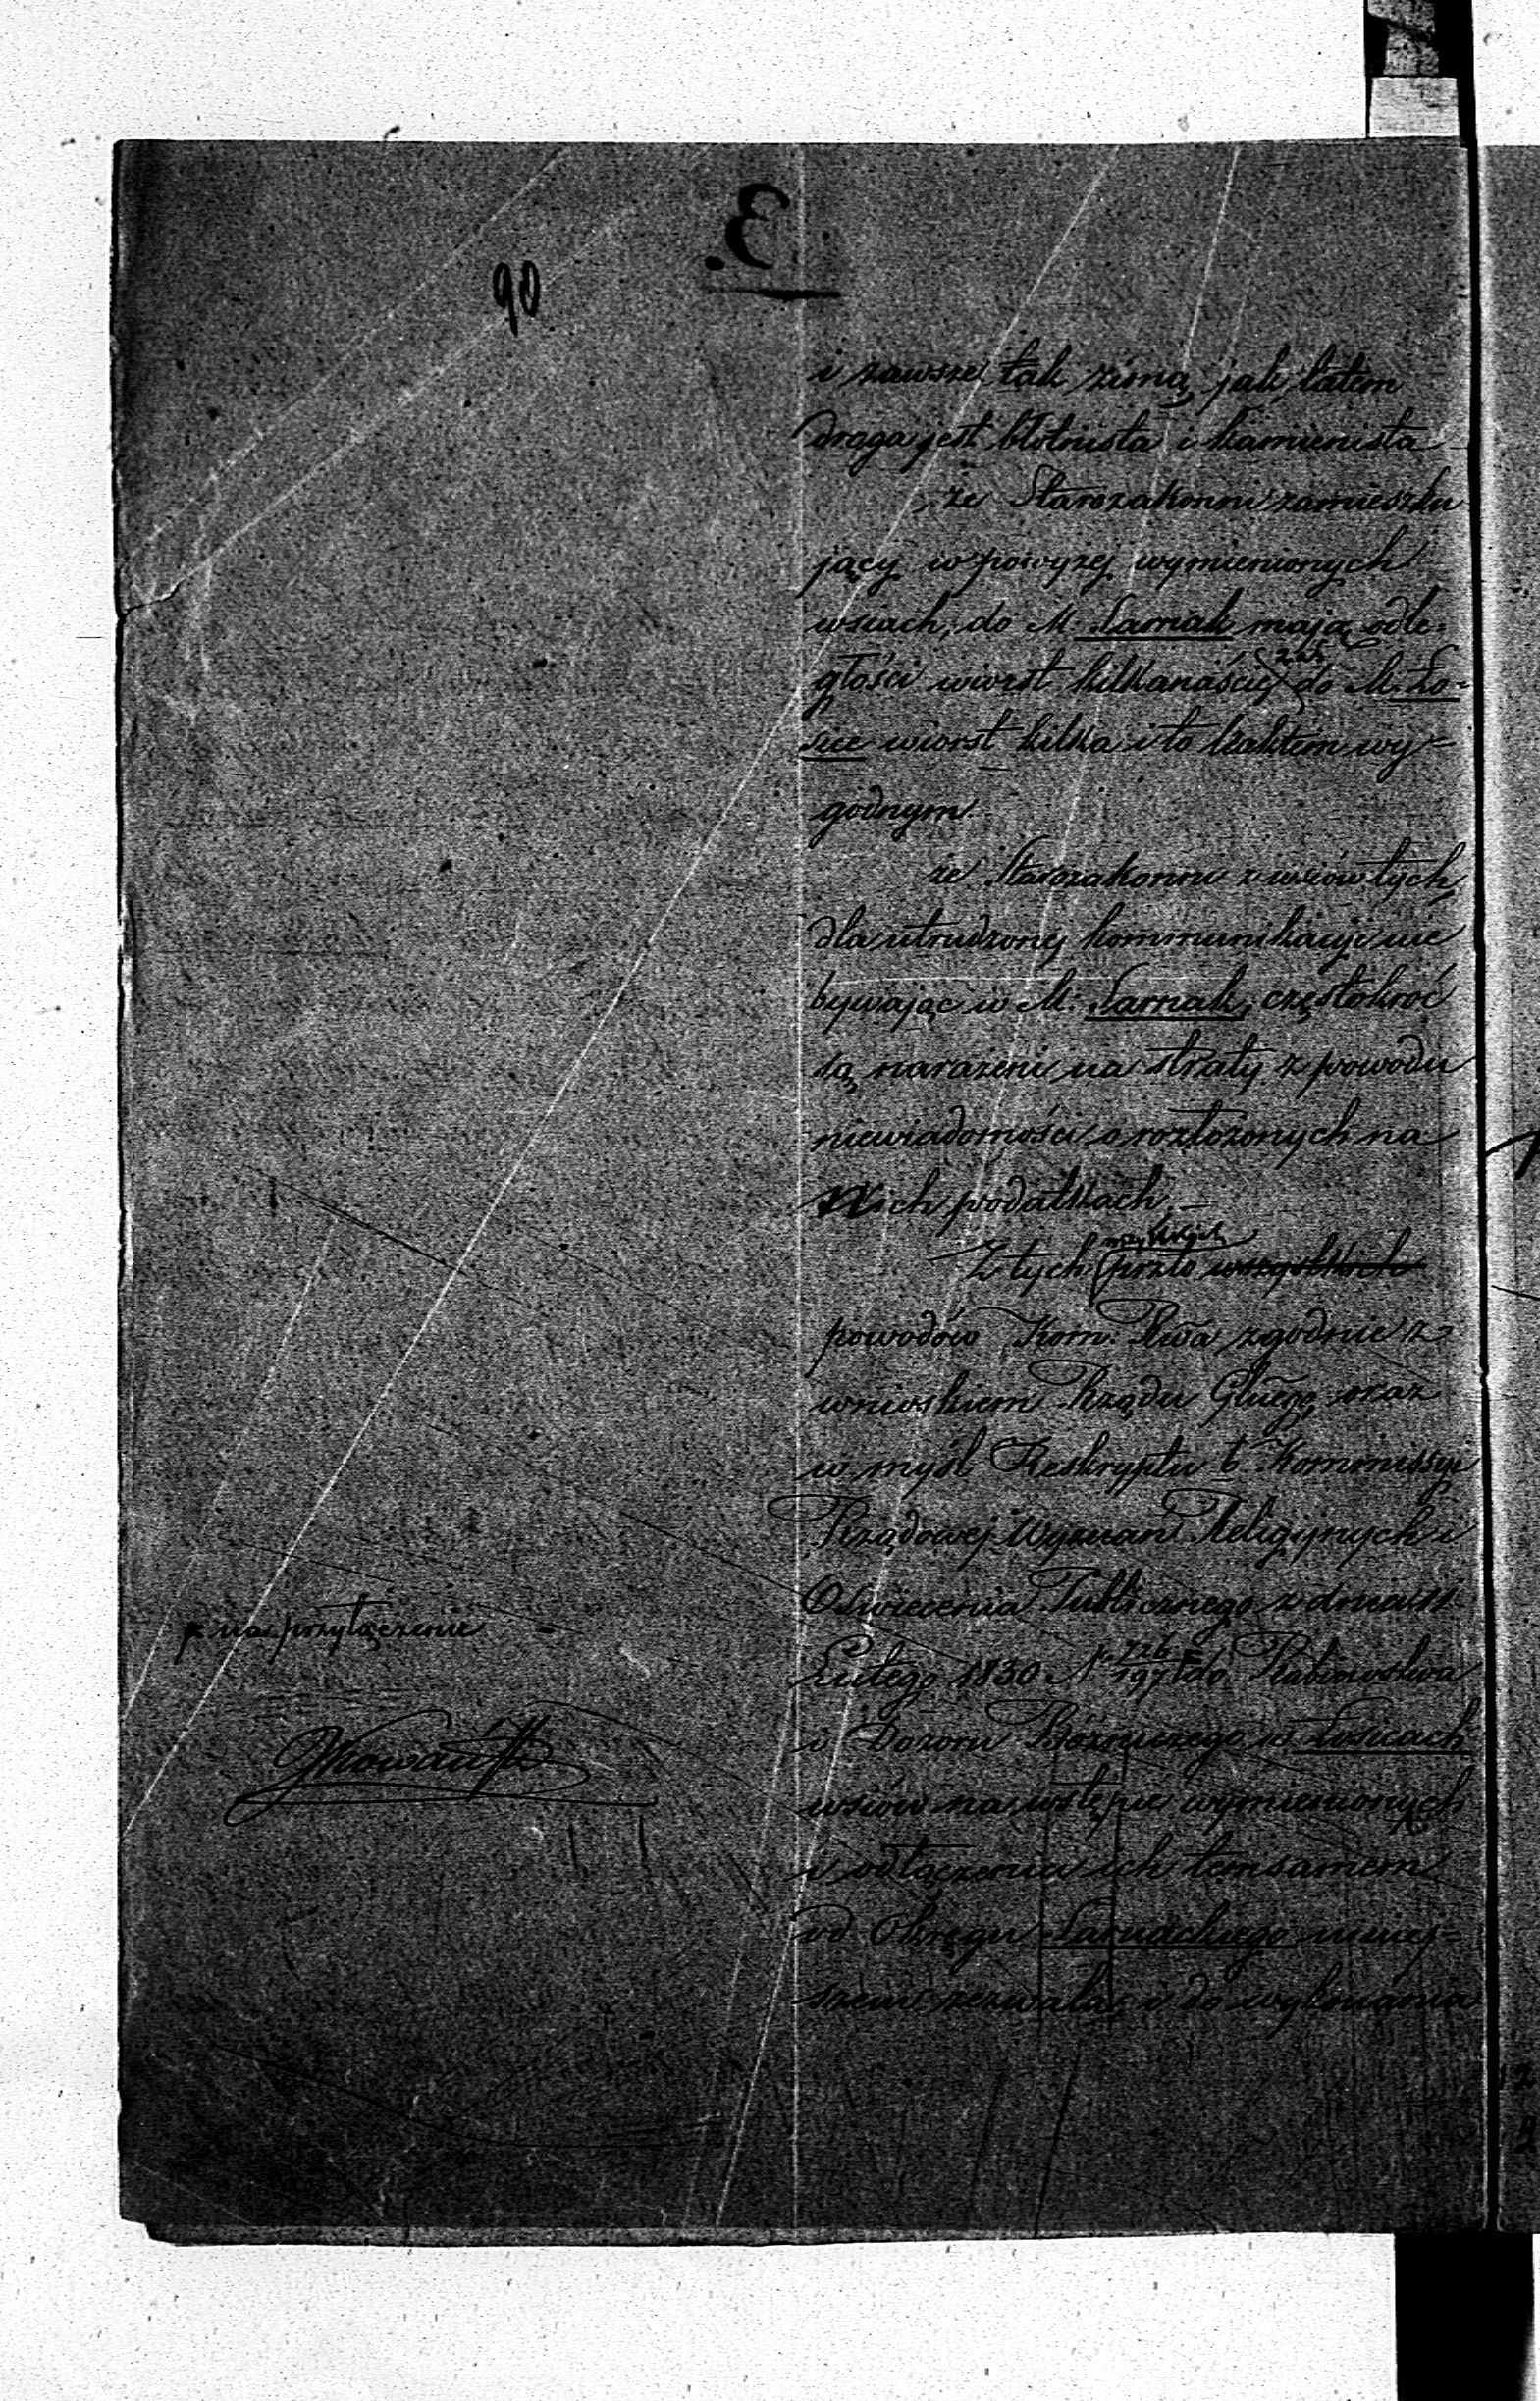 90
i zawsze tak zimą jak latem
droga jest błotnista i kamienista
że Starozakonni zamieszku
jący w powyżej wymienionych
wsiach, do M. Sarnak mają odle-
głości wiorst kilkanaście zaś do M. Ło-
sice wiorst kilka i to traktem wy-
godnym.
że Starozakonni z wsiów tych,
dla utrudzonej kommunikacyi nie
bywając w M. Sarnak, częstokroć
są narażeni na straty z powodu
niewiadomości o rozłożonych na
nich podatkach.
Z tych przto wszystkich
powodów Kom. Rwa zgodnie z
wnioskiem Rządu Glnego oraz
w myśl Reskryptu b. Kommissyi
Rządowej Wyznań Religijnych i
Oświecenia Publicznego z dnia
Lutego 1830 N do Rabinostwa
i Dozoru Bóżniczego w Łosicach
wsiów na wstępie wymienionych
i odłączenie ich temsamem
od Okręgu Sarnackiego niniej-
szem zezwala, i do wykonania
na przyłączenie